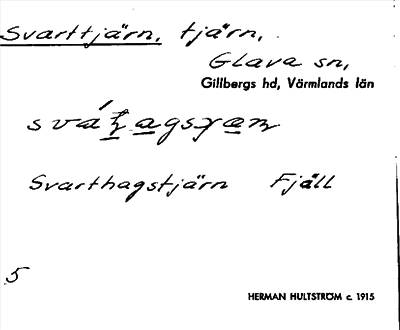 Svarttjärn, tjärn,
Glava sn,
Gillbergs hd, Värmlands län
Svarthagstjärn Fjäll
5
HERMAN HULTSTRÖM c. 1915